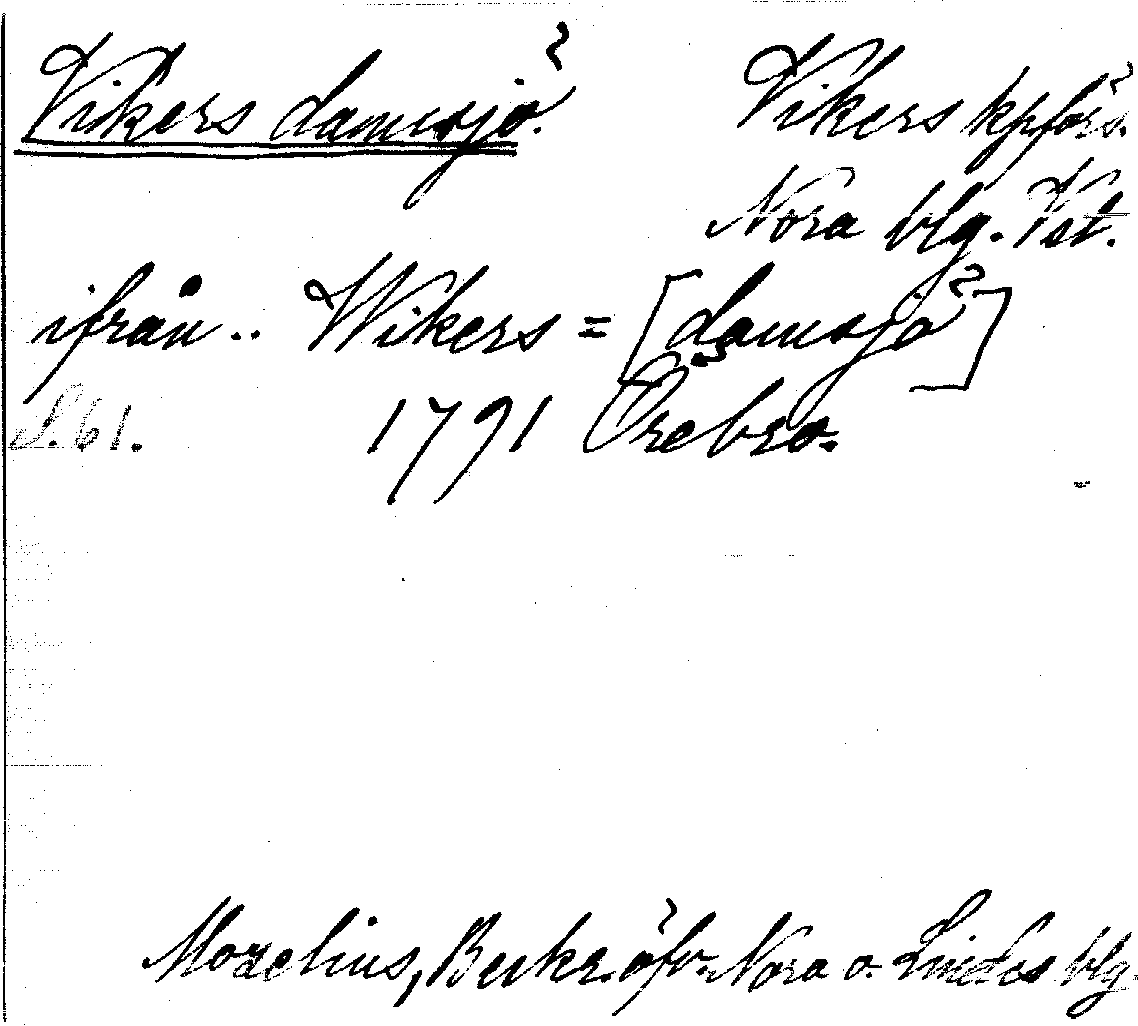 Vikers damsjö. Vikers kpförs.
Nora blg. Vst.
ifrån.. Wikers = [damsjö]
S. 61. 1791 Örebro.
Morelius, Beskr. öfv. Nora o. Lindes blg.